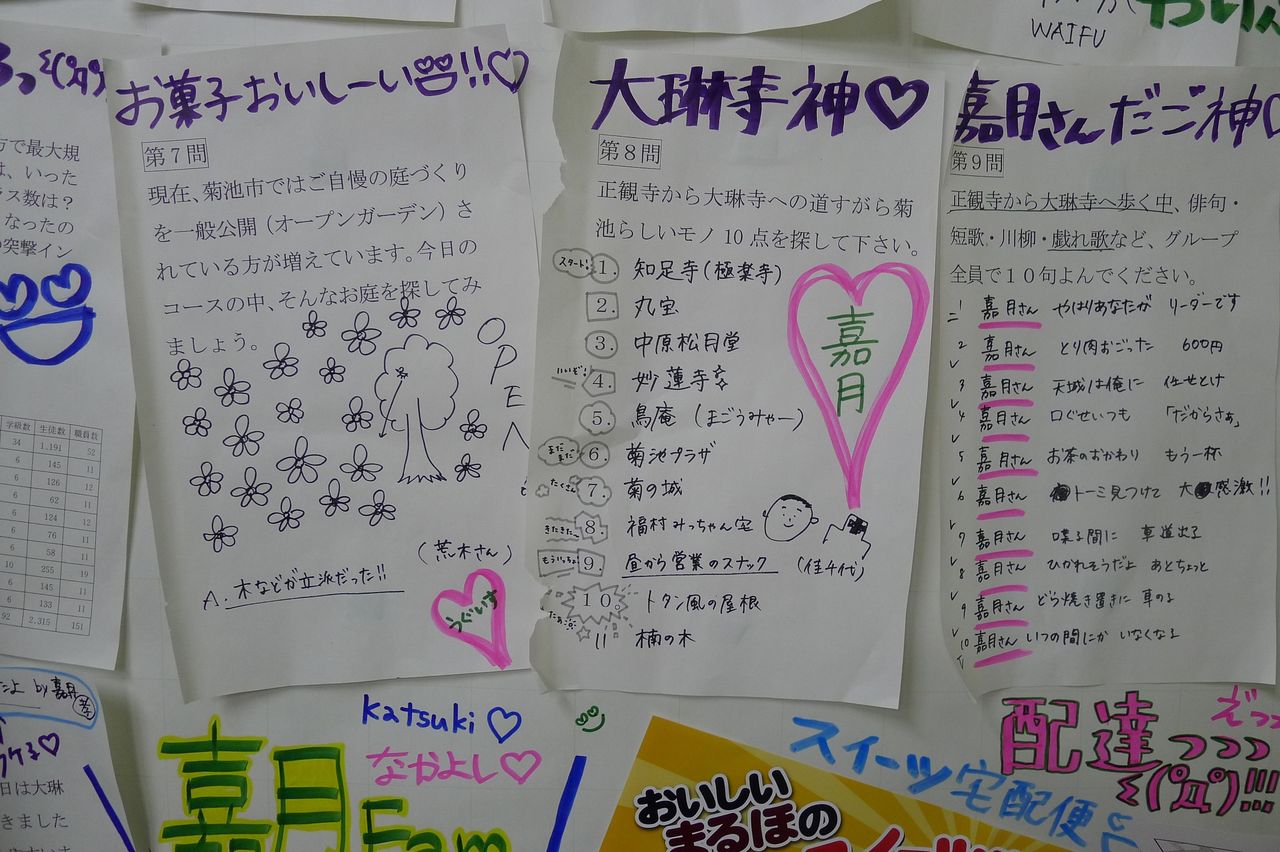 WAIFU
お菓子おいしーい!!♡
第７問
現在、菊池市ではご自慢の庭づくり
を一般公開（オープンガーデン）さ
れている方が増えています。今日の
コースの中、そんなお庭を探してみ
ましょう。
OPEN
(荒木さん)
A. 木などが立派だった!!
うぐいす
大琳寺神♡
第８問
正観寺から大琳寺への道すがら菊
池らしいモノ 10 点を探して下さい。
スタート!
1. 知足寺(極楽寺)
2. 丸宝
3. 中原松月堂
いいぞ!
4. 妙蓮寺
5. 鳥庵 (まごうみゃー)
まだまだ
6. 菊池プラザ
たくさん
7. 菊の城
きたきたこ
8. 福村みっちゃん宅
もういっちょ
9. 昼から営業のスナック (佳千代)
10. トタン風の屋根
11 楠の木
嘉月
嘉月さんだご神♡
第９問
正観寺から大琳寺へ歩く中、俳句・
短歌・川柳・戯れ歌など、グループ
全員で１０句よんでください。
1 嘉月さん やはりあなたが リーダーです
2 嘉月さん とり肉おごった 600円
3 嘉月さん 天城は俺に 任せとけ
4 嘉月さん 口ぐせいつも 「だからさぁ」
5 嘉月さん お茶のおかわり もう一杯
6 嘉月さん トーミ見つけて 大感激!!
7 嘉月さん 喋る間に 車道出る
8 嘉月さん ひかれそうだよ あとちょっと
9 嘉月さん どら焼き置きに 車の
10 嘉月さん いつの間にか いなくなる
方で最大規
は、いった
ラス数は？
なったの
突撃イン
学級数 生徒数 職員数
34 1,191 52
6 145 11
6 126 12
6 62 11
6 124 12
6 76 11
6 58 11
10 255 19
6 145 11
6 133 11
92 2,315 151
たよ by嘉月
日は大琳
きました
katsuki♡
なかよし♡
嘉月Fam
スイーツ宅配便
配達っっっ
Σ(ﾟДﾟ)!!!
えっっ
おいしい
まるほの